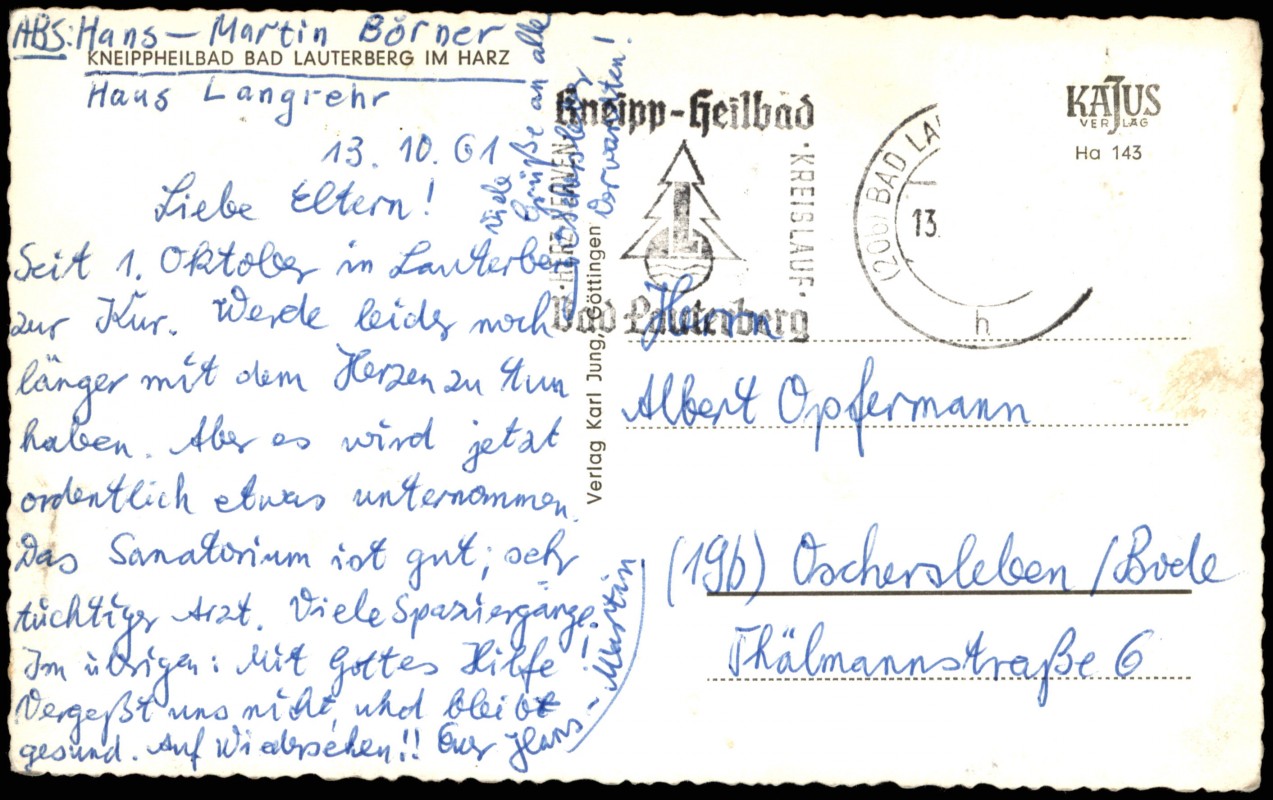 ABS: Hans-Martin Börner
KNEIPPHEILBAD BAD LAUTERBERG IM HARZ
Haus Langrehr
13. 10. 61
Liebe Eltern!
Seit 1. Oktober in Lauterberg
zur Kur. Werde leider noch
länger mit dem Herzen zu tun
haben. Aber es wird jetzt
ordentlich etwas unternommen.
Das Sanatorium ist gut; sehr
tüchtiger Arzt. Viele Spaziergänge.
Im übrigen: Mit Gottes Hilfe!
Vergeßt uns nicht, und bleibt
gesund. Auf Wiedersehen!! Euer Hans-Martin
Viele
Grüße an alle
Oscherslebener
Verwandten!
Verlag Karl Jung, Göttingen
Kneipp-Heilbad
·HERZ·NERVEN·
·KREISLAUF·
L
Bad Lauterberg
(20b) BAD LA
13.
h
KAJUS
VERLAG
Ha 143
Herrn
Albert Opfermann
(19b) Oschersleben/Bode
Thälmannstraße 6